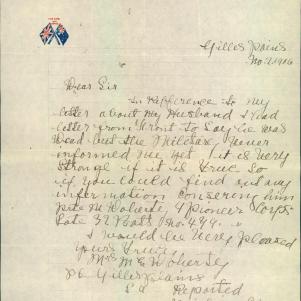 Gilles Plains
Nov 2 1916
Dear Sir
In Refference to my
letter about my Husband I had
letter from Front to Say he was
Dead but the Military Never
informed me yet. it is very
Strange if it is true so
if you could find out any
information conserning him
Pte H Roberts, 4 Pioneer Corps
Late 32 Batt No 499.
I would be very pleased
yours truly
Mrs M E
P.O Gilles Plains
S.A Reported